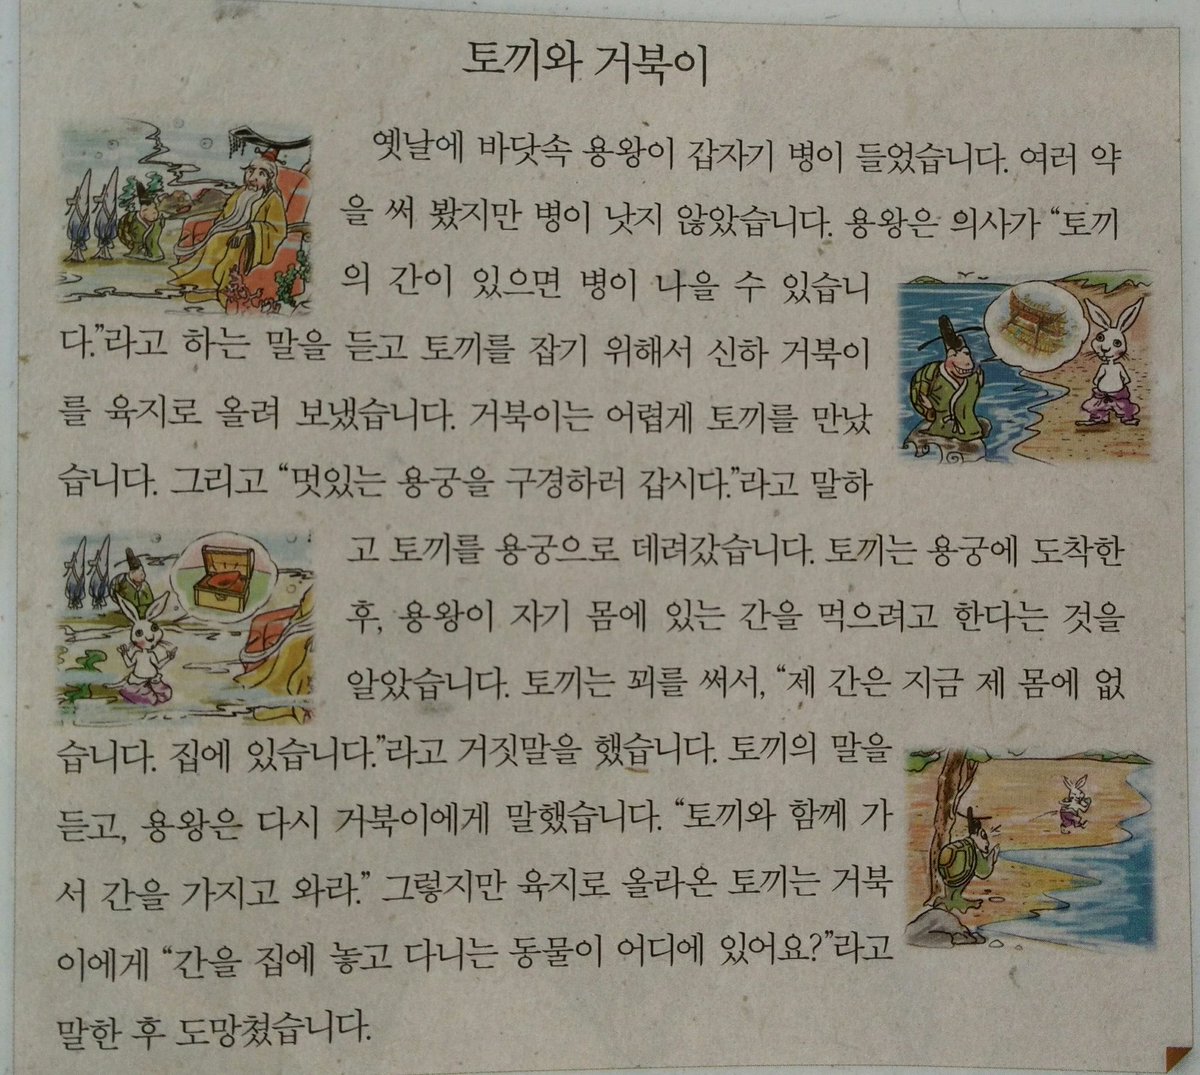 토끼와 거북이
옛날에 바닷속 용왕이 갑자기 병이 들었습니다. 여러 약
을 써 봤지만 병이 낫지 않았습니다. 용왕은 의사가 “토끼
의 간이 있으면 병이 나을 수 있습니
다.”라고 하는 말을 듣고 토끼를 잡기 위해서 신하 거북이
를 육지로 올려 보냈습니다. 거북이는 어렵게 토끼를 만났
습니다. 그리고 “멋있는 용궁을 구경하러 갑시다.”라고 말하
고 토끼를 용궁으로 데려갔습니다. 토끼는 용궁에 도착한
후, 용왕이 자기 몸에 있는 간을 먹으려고 한다는 것을
알았습니다. 토끼는 꾀를 써서, “제 간은 지금 제 몸에 없
습니다. 집에 있습니다.”라고 거짓말을 했습니다. 토끼의 말을
듣고, 용왕은 다시 거북이에게 말했습니다. “토끼와 함께 가
서 간을 가지고 와라.” 그렇지만 육지로 올라온 토끼는 거북
이에게 “간을 집에 놓고 다니는 동물이 어디에 있어요?”라고
말한 후 도망쳤습니다.